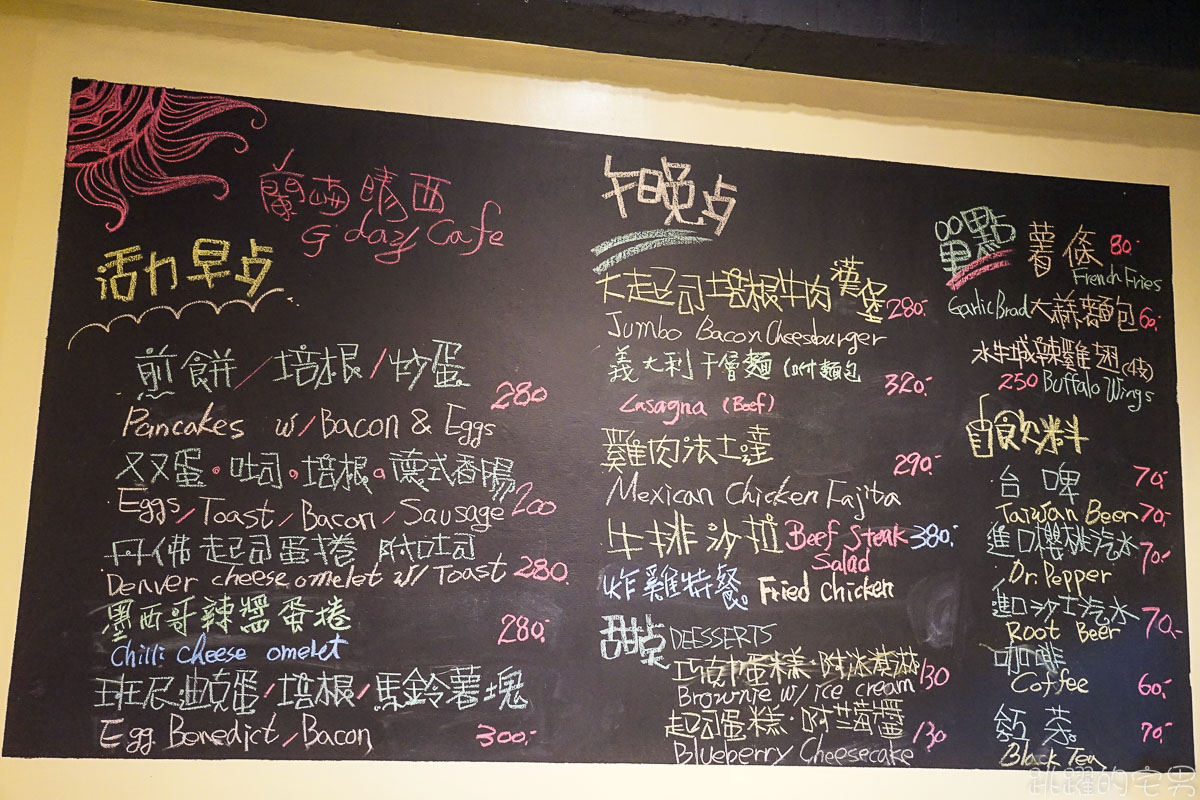 蘭嶼晴西
G'day Cafe
活力早点
煎餅/培根/炒蛋
280
Pancakes w/Bacon & Eggs
双蛋·吐司·培根·德式香腸
Eggs/Toast/Bacon/Sausage 200
丹佛起司蛋捲 附吐司
Denver cheese omelet w/ Toast 280.
墨西哥辣醬蛋捲
280.
Chilli cheese omelet
班尼迪克蛋/培根/馬鈴薯塊
Egg Benedict/Bacon 300.
午晚点
大起司培根牛肉漢堡 280.
Jumbo Bacon Cheesburger
義大利千層麵(附麵包 320.
Lasagna (Beef)
雞肉法士達 290.
Mexican Chicken Fajita
牛排沙拉 Beef Steak Salad 380.
炸雞特餐。 Fried Chicken
甜点 DEESSERTS
巧克力蛋糕·附冰淇淋 130
Brownie w/ ice cream
起司蛋糕·附藍莓醬 130
Blueberry Cheesecake
單點
薯條 80.
French Fries
Garlic Brad 大蒜麵包 60.
水牛城辣雞翅(4支)
250 Buffalo Wings
飲料
台啤 70.
Taiwan Beer
進口櫻桃汽水 70.
Dr. Pepper 70.
進口沙士汽水 70.
Root Beer
咖啡
Coffee 60.
紅茶 70.
Black Tea
跳躍的宅男